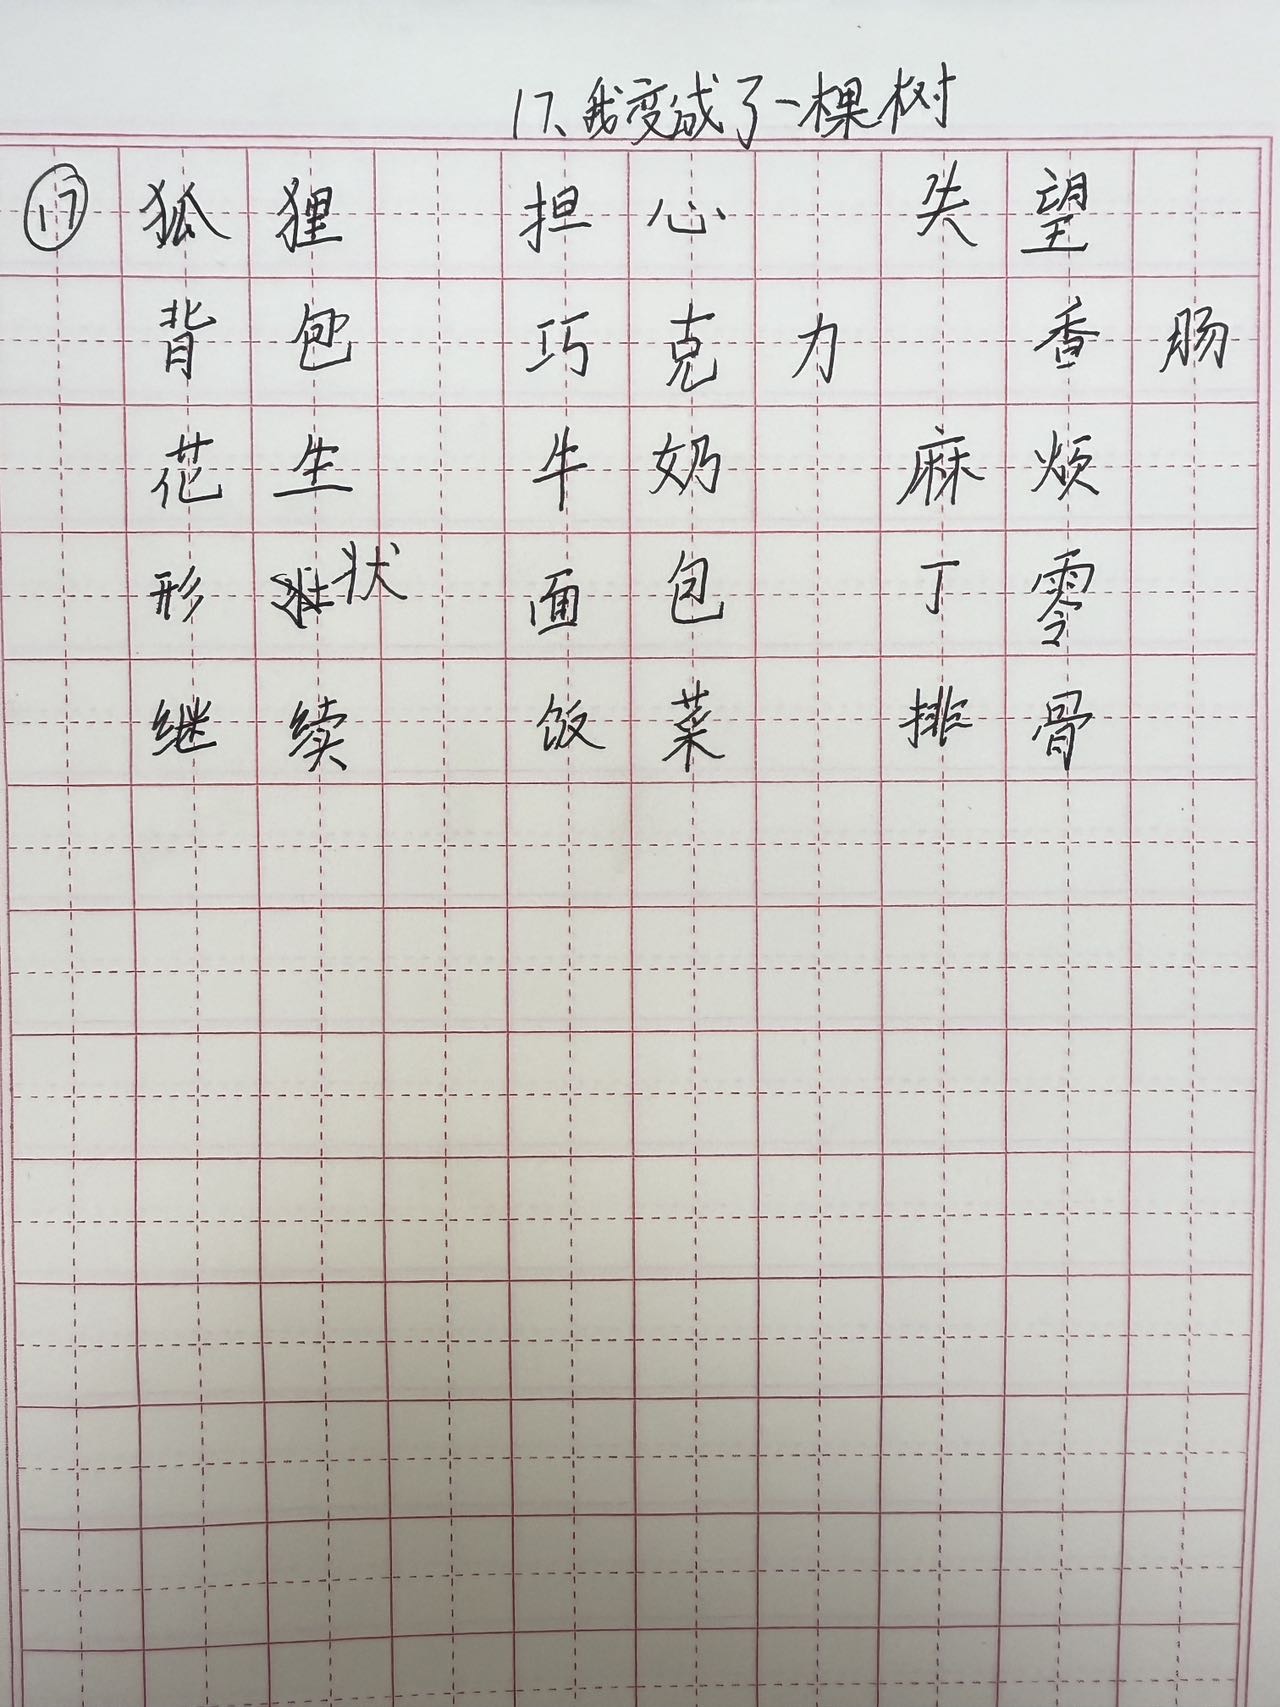 17、我变成了一棵树
⑰ 狐狸 担心 失望
背包 巧克力 香肠
花生 牛奶 麻烦
形状 面包 丁零
继续 饭菜 排骨